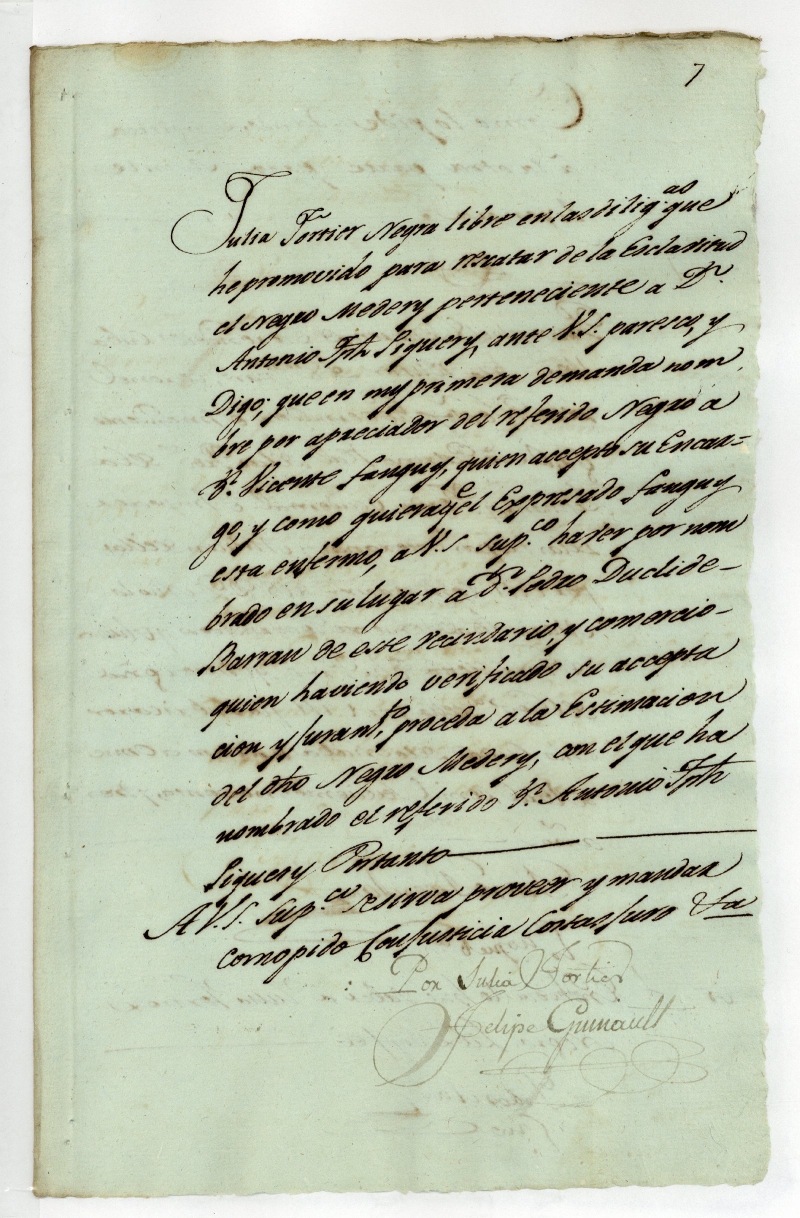 7
Julia Fortier Negra libre en las dilig.as que
he promovido para rescatar de la Esclavitud
el Negro Medery perteneciente a D.n
Antonio Jph Liquery, ante V.S. paresco, y
Digo; que en my primera demanda nom
bre por apreciador del referido Negro a
D.n Vicente Fanguy, quien accepto su Encar-
go, y como quiera q.e el Expresado Fanguy
esta enfermo, a V.S. sup.co haver por nom
brado en su lugar a D.n Pedro Duclide-
Barran de este vecindario, y comercio-
quien haviendo verificado su accepta
cion y juram.to, proceda a la Estimacion
del dho Negro Medery, con el que ha
nombrado el referido D.n Antonio Jph
Liquery Portanto
A V.S. sup.co se sirva proveer y mandar
como pido Con Justicia Costas Juro &a
Por Julia Fortier
Felipe Guinault